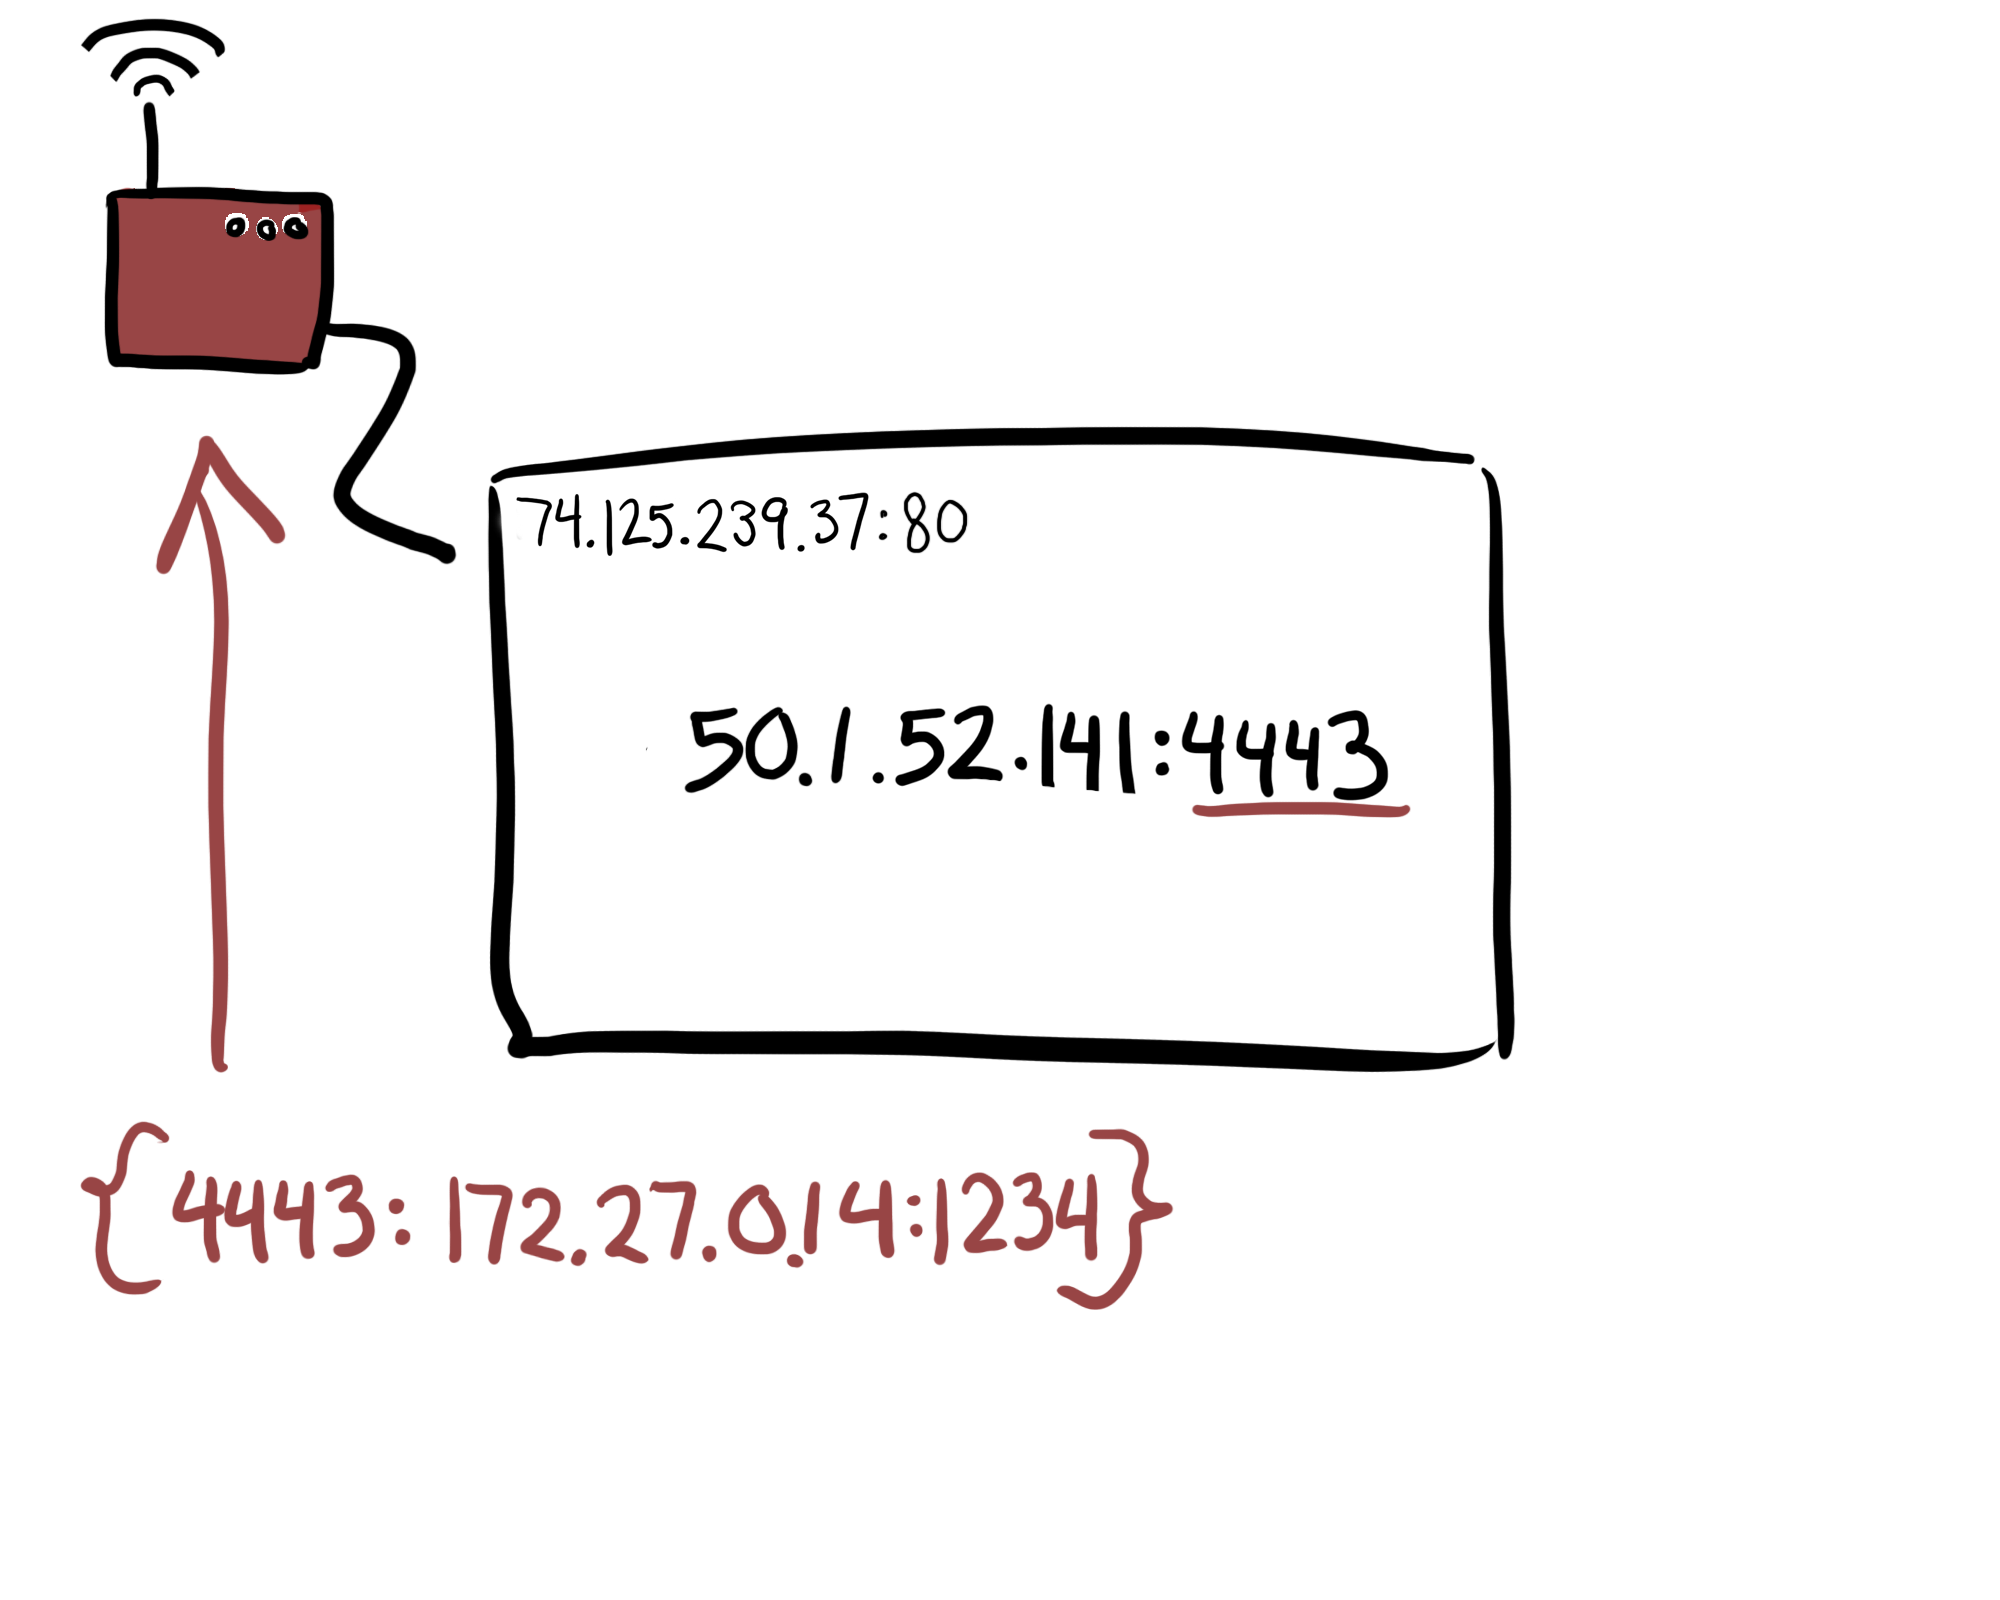 74.125.239.37:80
50.1.52.141:4443
{4443: 172.27.0.14:1234}